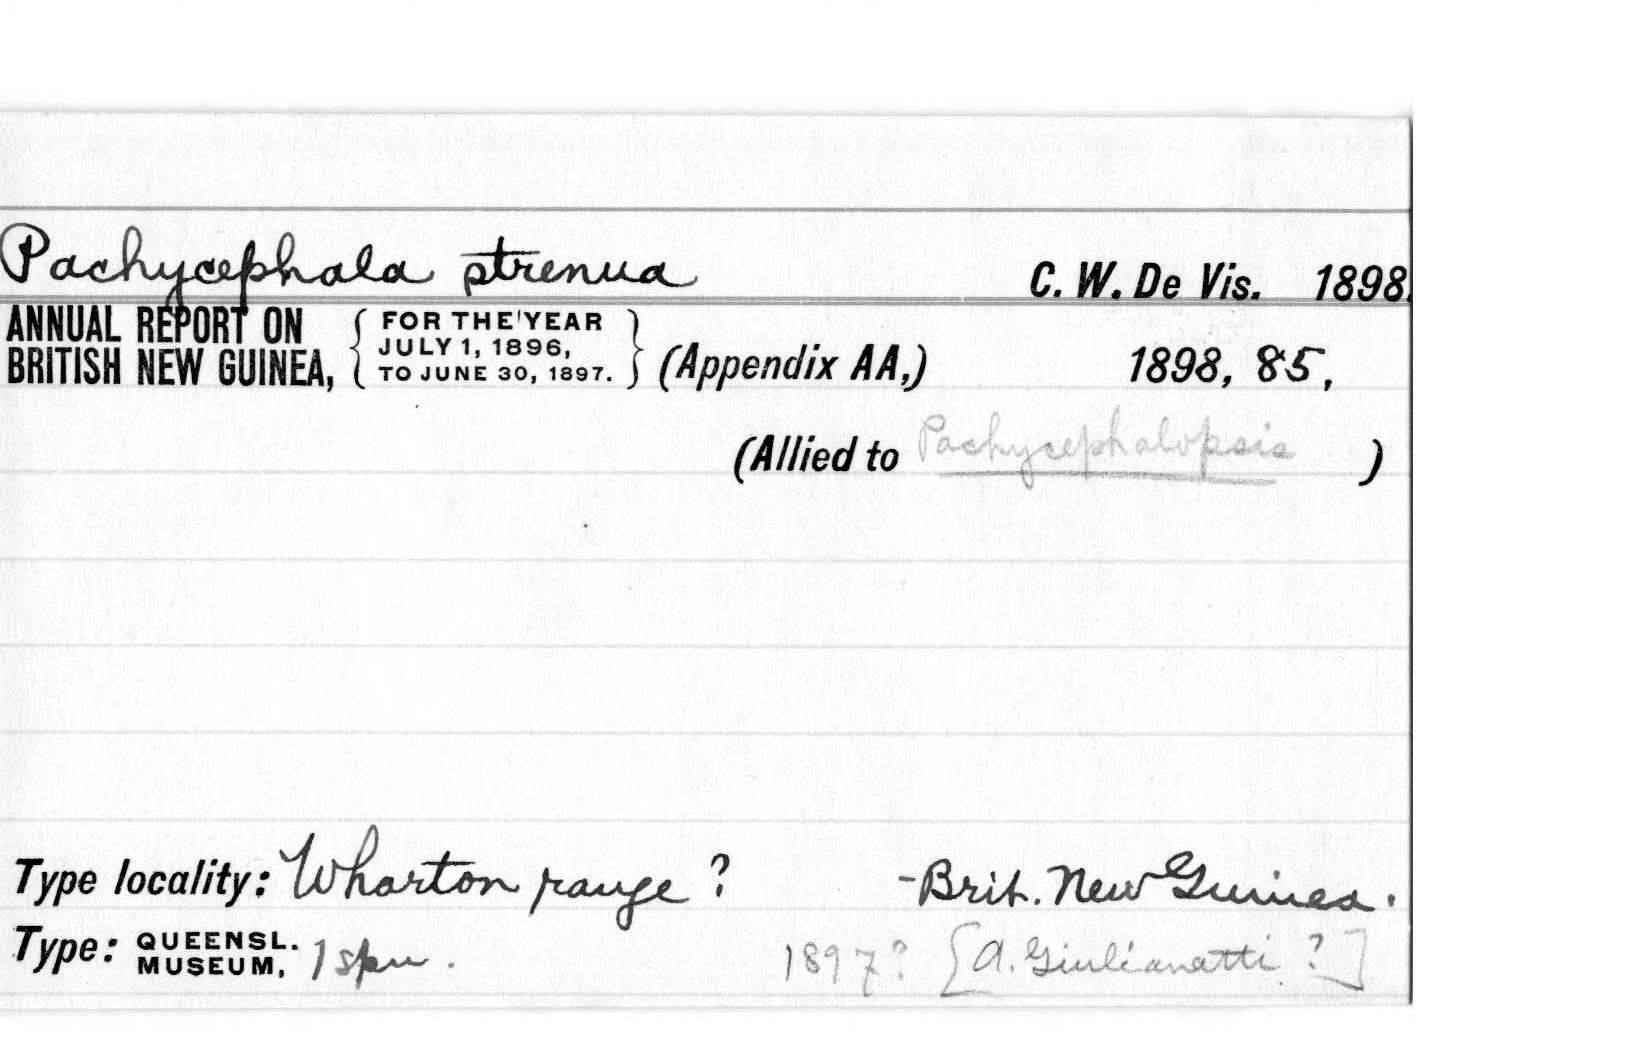 Pachycephala strenua C. W. De Vis. 1898.
ANNUAL REPORT ON BRITISH NEW GUINEA, { FOR THE YEAR JULY 1, 1896, TO JUNE 30, 1897. } (Appendix AA,) 1898, 85,
(Allied to Pachycephalopsis )
Type locality: Wharton range ? - Brit. New Guinea.
Type: QUEENSL. MUSEUM, 1 spn. 1897? [A. Giulianatti ?]